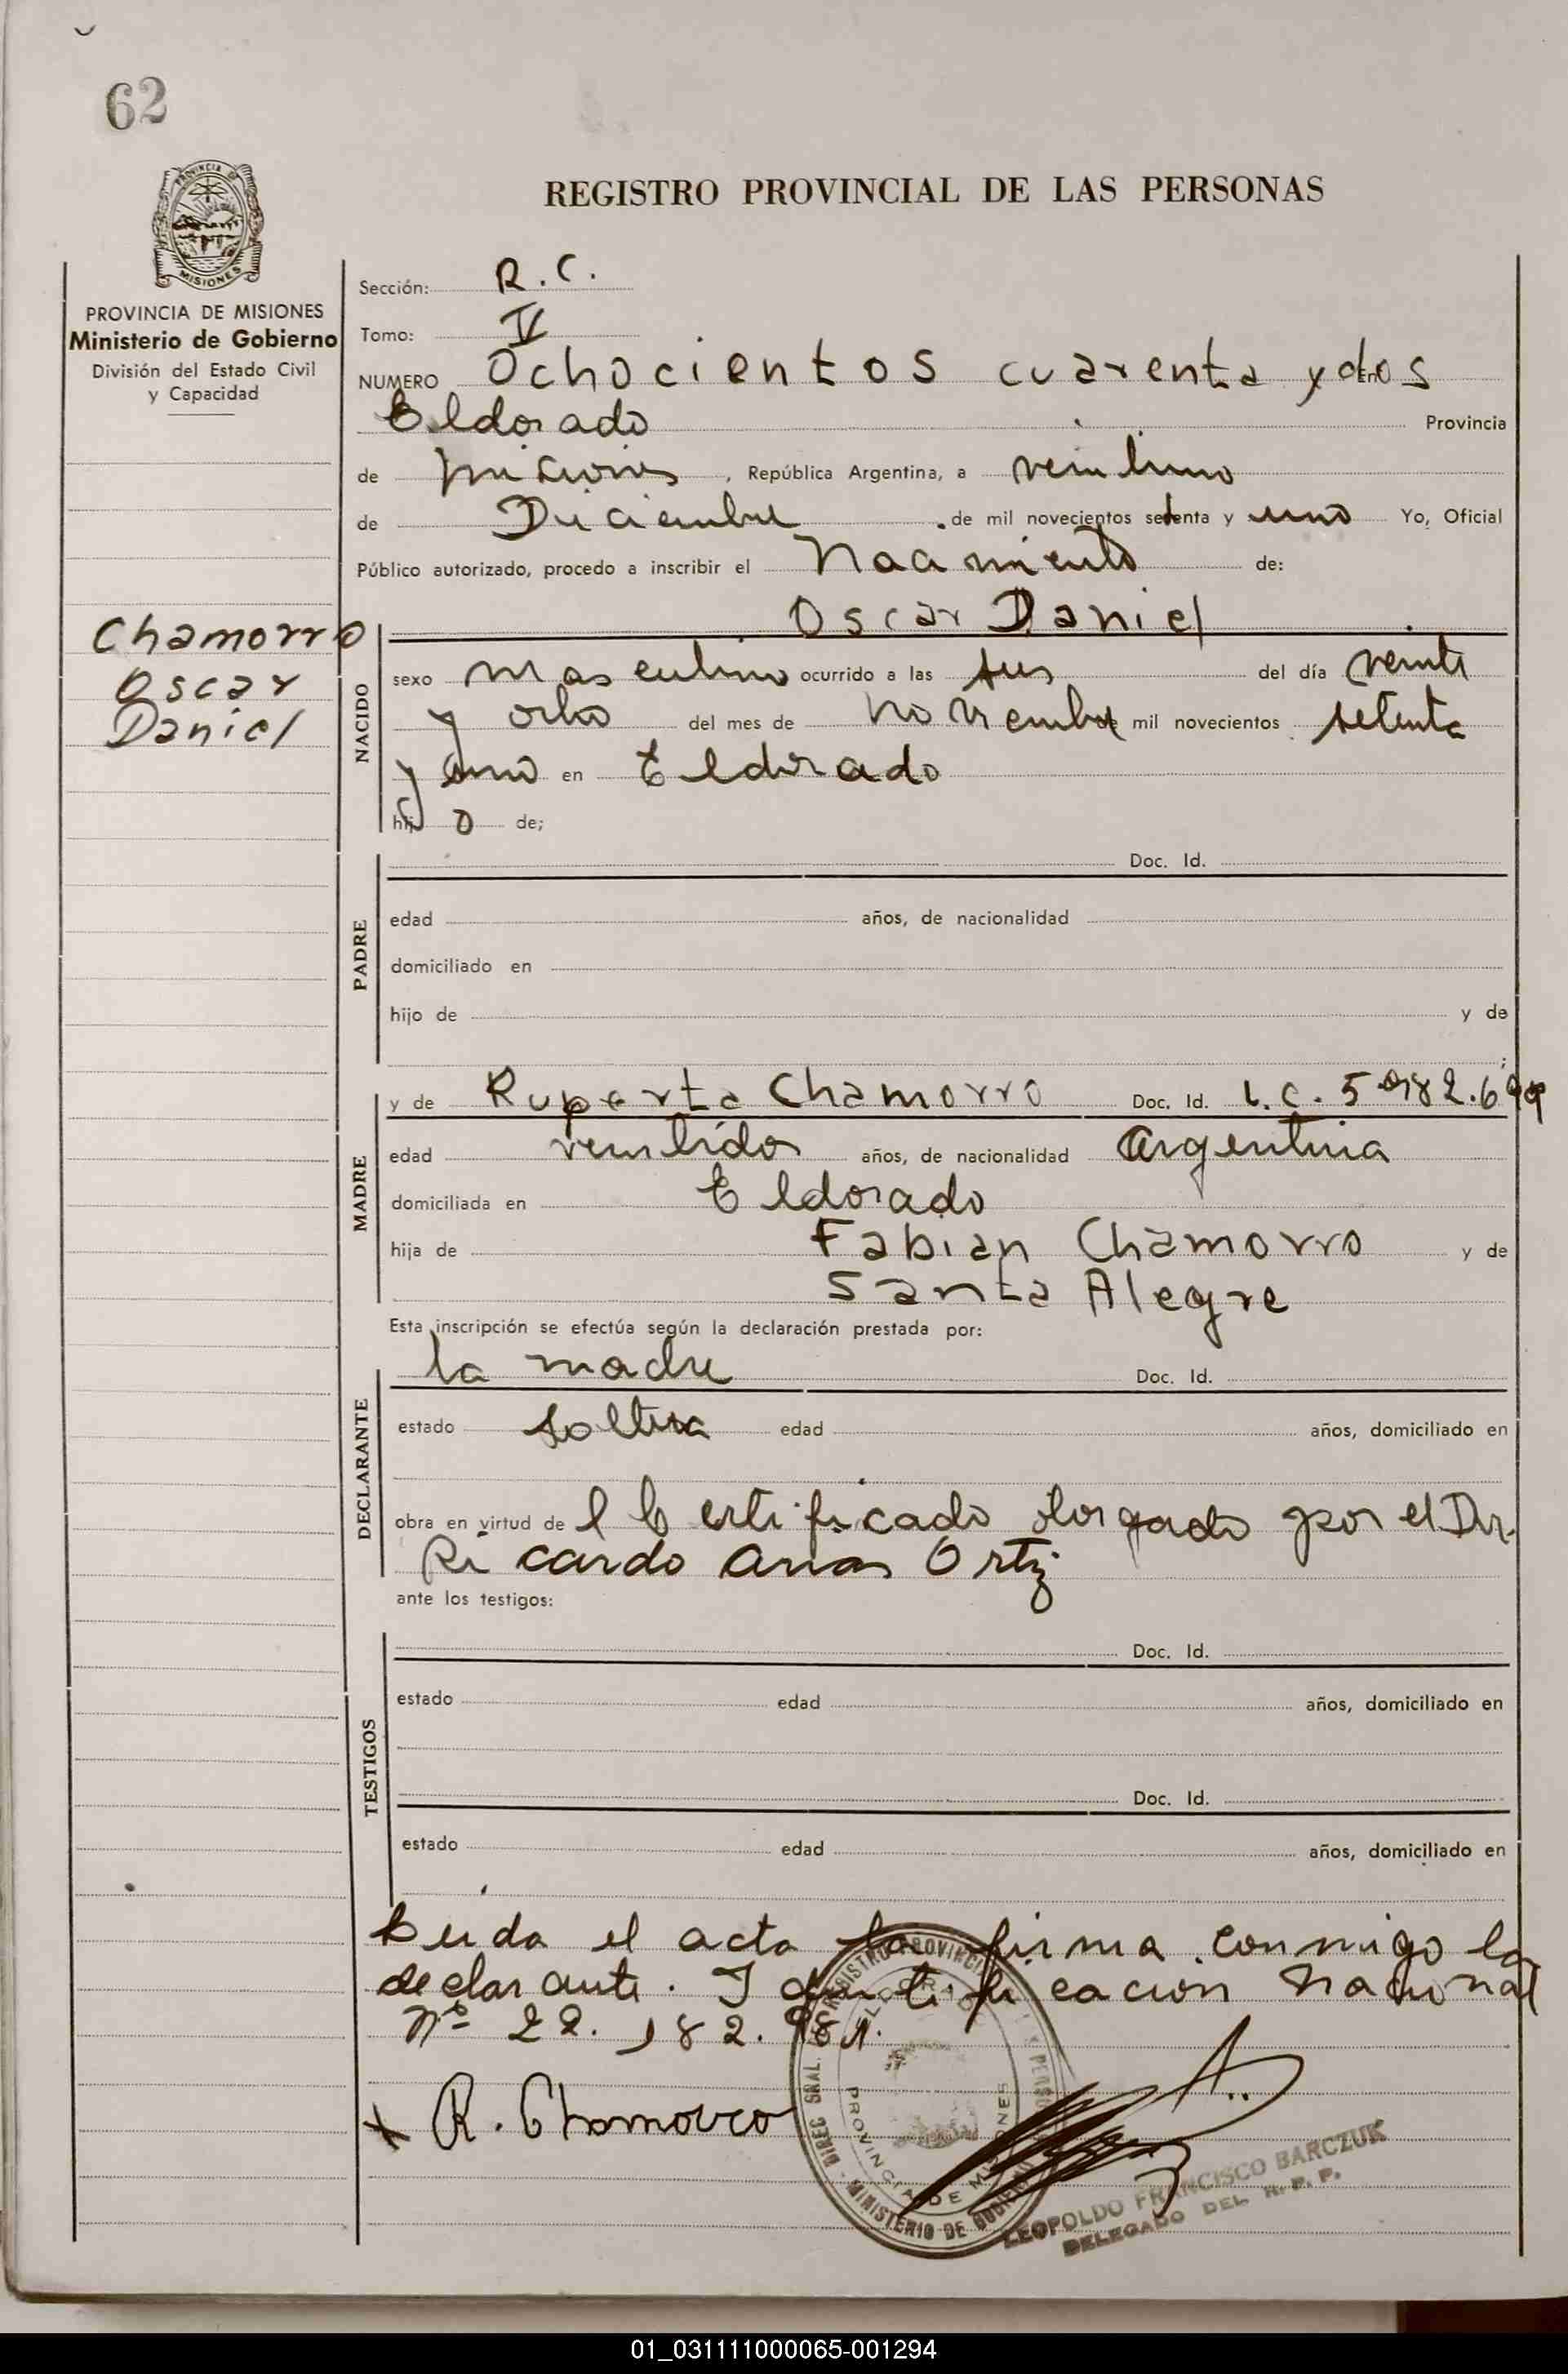 62
PROVINCIA DE
MISIONES
PROVINCIA DE MISIONES
Ministerio de Gobierno
División del Estado Civil
y Capacidad
Chamorro
Oscar
Daniel
REGISTRO PROVINCIAL DE LAS PERSONAS
Sección: R.C.
Tomo: IV
NUMERO Ochocientos cuarenta y dos En
Eldorado Provincia
de Misiones, República Argentina, a veintiuno
de Diciembre de mil novecientos setenta y uno Yo, Oficial
Público autorizado, procedo a inscribir el Nacimiento de:
Oscar Daniel
NACIDO
sexo masculino ocurrido a las tres del día veinti
y ocho del mes de noviembre mil novecientos setenta
y uno en Eldorado
hijo de;
PADRE
Doc. Id.
edad años, de nacionalidad
domiciliado en
hijo de y de
;
MADRE
y de Ruperta Chamorro Doc. Id. L.C. 5.982.699
edad veintidos años, de nacionalidad Argentina
domiciliada en Eldorado
hija de Fabian Chamorro y de
Santa Alegre
Esta inscripción se efectúa según la declaración prestada por:
DECLARANTE
la madre Doc. Id.
estado soltera edad años, domiciliado en
obra en virtud del Certificado otorgado por el Dr.
Ricardo Arias Ortiz
ante los testigos:
TESTIGOS
Doc. Id.
estado edad años, domiciliado en
Doc. Id.
estado edad años, domiciliado en
Leida el acta la firma conmigo la
declarante. Identificacion Nacional
Nº 22.182.981.
x R. Chamorro
ELDORADO
PROVINCIA DE MISIONES
MINISTERIO DE GOBIERNO
LEOPOLDO FRANCISCO BARCZUK
DELEGADO DEL R.P.P.
01_031111000065-001294